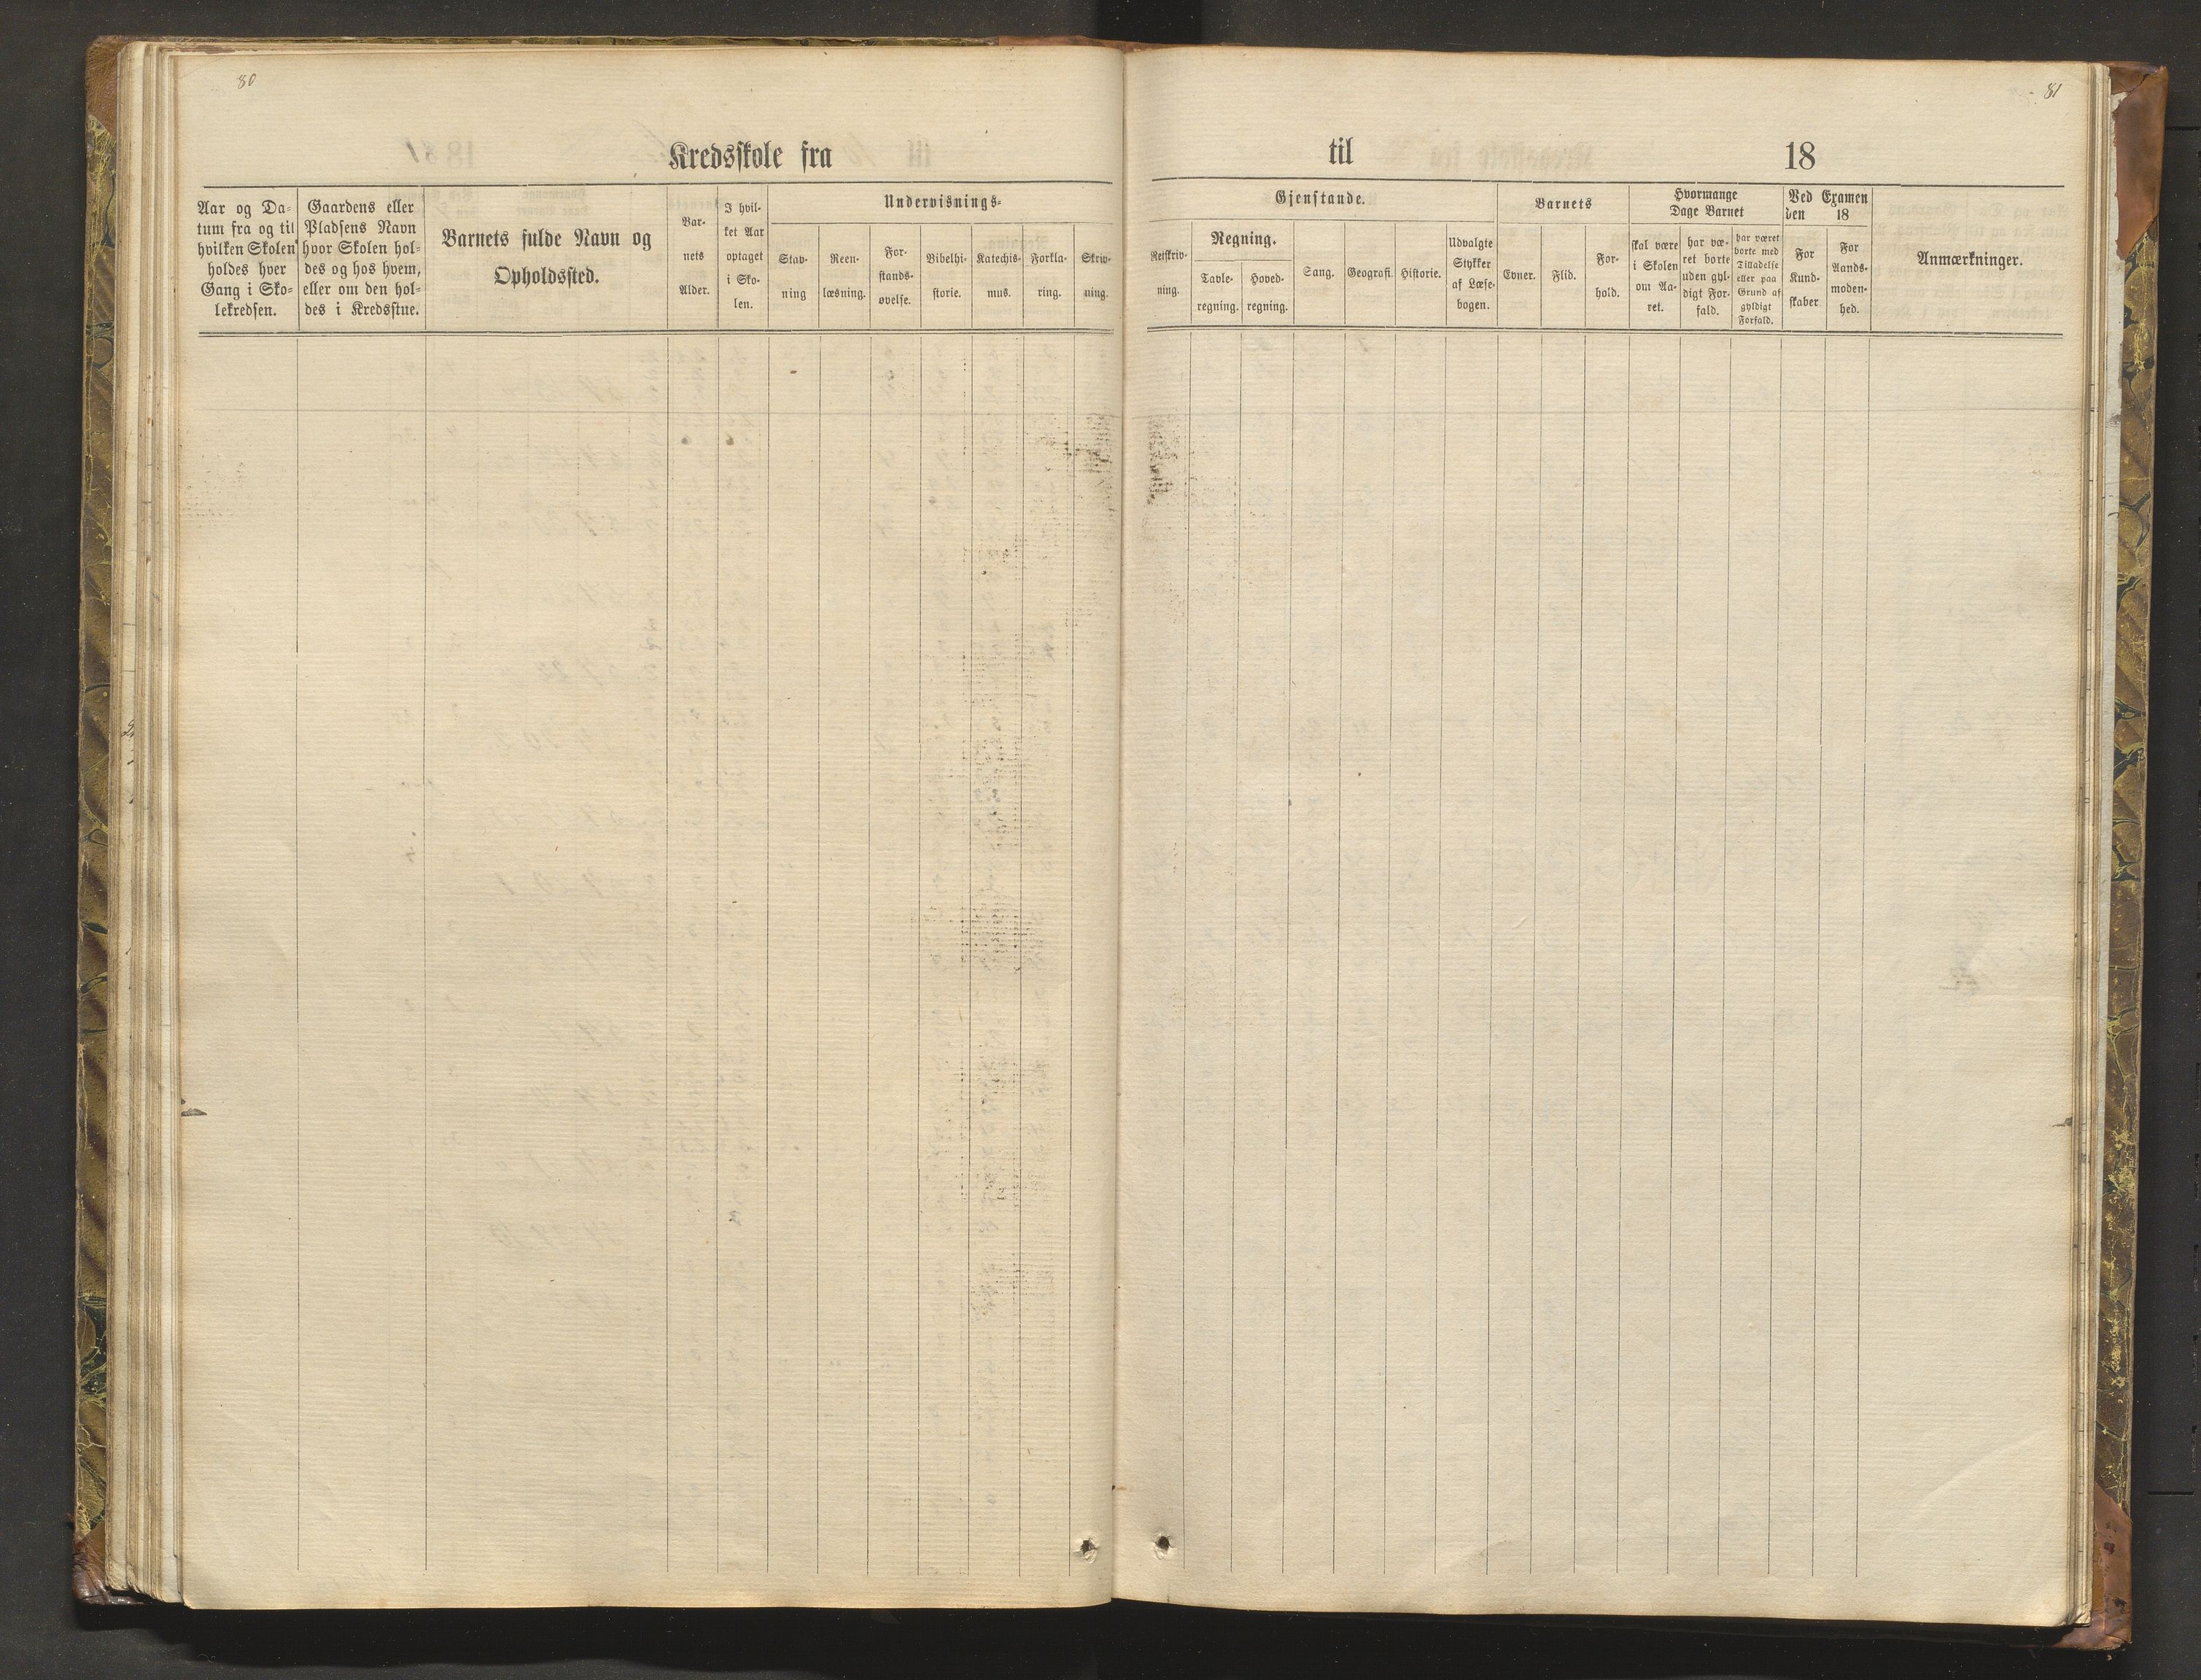 80
81
Kredsskole fra
til
18
Aar og Da-
tum fra og til
hvilken Skolen
holdes hver
Gang i Sko-
lekredsen.
Gaardens eller
Pladsens Navn
hvor Skolen hol-
des og hos hvem,
eller om den hol-
des i Kredsstue.
Barnets fulde Navn og
Opholdssted.
Bar-
nets
Alder.
I hvil-
ket Aar
optaget
i Sko-
len.
Undervisnings-
Stav-
ning
Reen-
læsning.
For-
stands-
øvelse.
Bibelhi-
storie.
Katechis-
mus.
Forkla-
ring.
Skriv-
ning.
Gjenstande.
Retskriv-
ning.
Regning.
Tavle-
regning.
Hoved-
regning.
Sang.
Geografi.
Historie.
Udvalgte
Stykker
af Læse-
bogen.
Barnets
Evner.
Flid.
For-
hold.
Hvormange
Dage Barnet
skal være
i Skolen
om Aa-
ret.
har væ-
ret borte
uden gyl-
digt For-
fald.
har været
borte med
Tilladelse
eller paa
Grund af
gyldigt
Forfald.
Ved Examen
den 18
For
Kund-
skaber
For
Aands-
moden-
hed.
Anmærkninger.